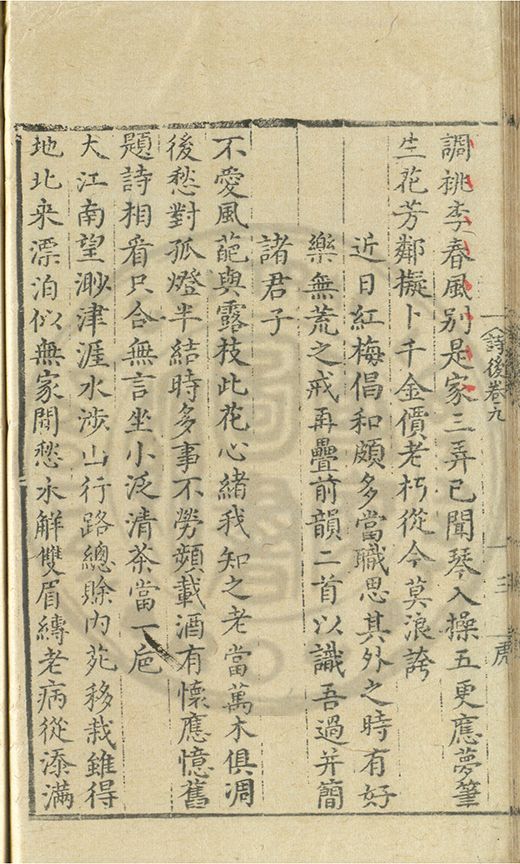 詩後卷九
三
虎
調桃李春風別是家三弄已聞琴入操五更應夢筆
生花芳鄰擬卜千金價老朽從今莫浪誇
近日紅梅倡和頗多當職思其外之時有好
樂無荒之戒再疊前韻二首以識吾過并簡
諸君子
不愛風葩與露枝此花心緒我知之老當萬木俱凋
後愁對孤燈半結時多事不勞頻載酒有懷應憶舊
題詩相看只合無言坐小泛清茶當一巵
大江南望渺津涯水涉山行路總賒內苑移栽雖得
地北來漂泊似無家閒愁永解雙眉縛老病從添滿